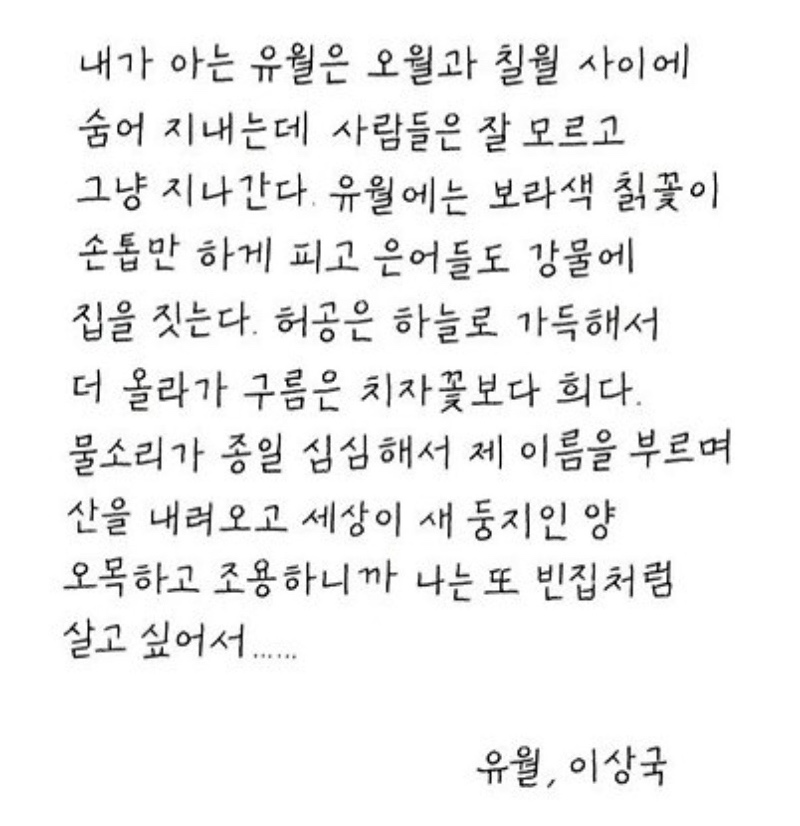 내가 아는 유월은 오월과 칠월 사이에
숨어 지내는데 사람들은 잘 모르고
그냥 지나간다. 유월에는 보라색 칡꽃이
손톱만 하게 피고 은어들도 강물에
집을 짓는다. 허공은 하늘로 가득해서
더 올라가 구름은 치자꽃보다 희다.
물소리가 종일 심심해서 제 이름을 부르며
산을 내려오고 세상이 새 둥지인 양
오목하고 조용하니까 나는 또 빈집처럼
살고 싶어서......
유월, 이상국